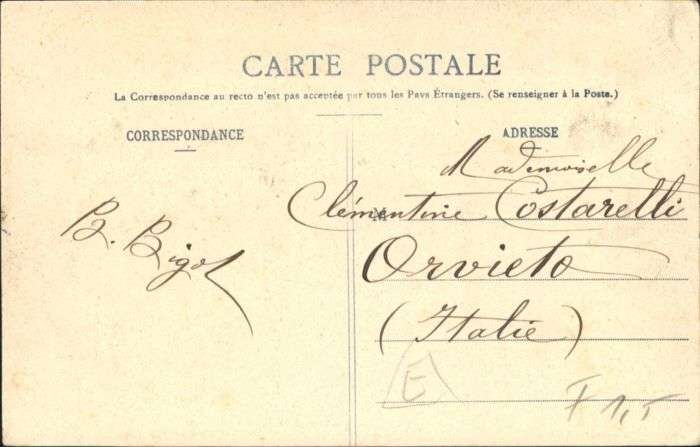 CARTE POSTALE
La Correspondance au recto n'est pas acceptée par tous les Pays Étrangers. (Se renseigner à la Poste.)
CORRESPONDANCE
B. Bigot
ADRESSE
Mademoiselle
Clémentine Costarelli
Orvieto
(Italie)
E